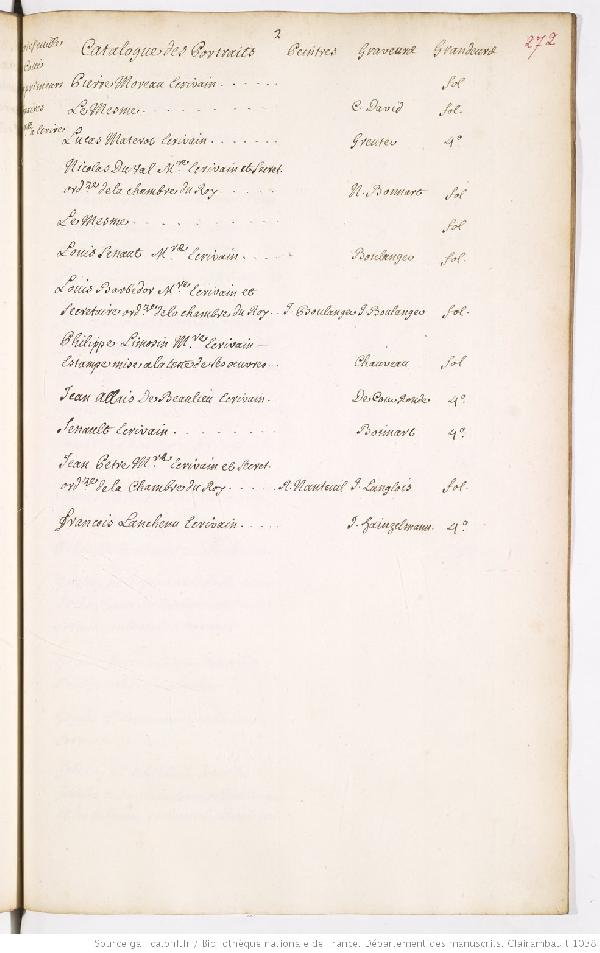 2
272
Catalogue des Portraits Peintres Graveurs Grandeurs
Pierre Moreau Ecrivain . . . . . . fol
Le Mesme . . . . . . . . . C. David fol.
Lucas Materot Ecrivain . . . . . Greuter 4º
Nicolas Du Val Mre Ecrivain et Secret.
ordre de la chambre du Roy . . . . . N. Bonnart fol
Le Mesme . . . . . . . . . fol
Louis Senault Mre Ecrivain . . . . Boulanger fol.
Louis Barbedor Mre Ecrivain et
Secretaire ordre de la chambre du Roy . . J. Boulanger J. Boulanger fol.
Philippe Limosin Mre Ecrivain –
Estampe mise a la teste de ses œuvres . . Chauveau fol
Jean Allais De Beaulieu Ecrivain . 4º
Senault Ecrivain . . . . . . . . Bonnart 4º.
Jean Petre Mre Ecrivain et Secret.
ordre de la Chambre du Roy . . . . . R. Nanteuil J. Langlois fol.
François Ecrivain . . . . . J. Hainzelmann. 4º
Source gallica.bnf.fr / Bibliothèque nationale de France. Département des manuscrits. Clairambault 1038